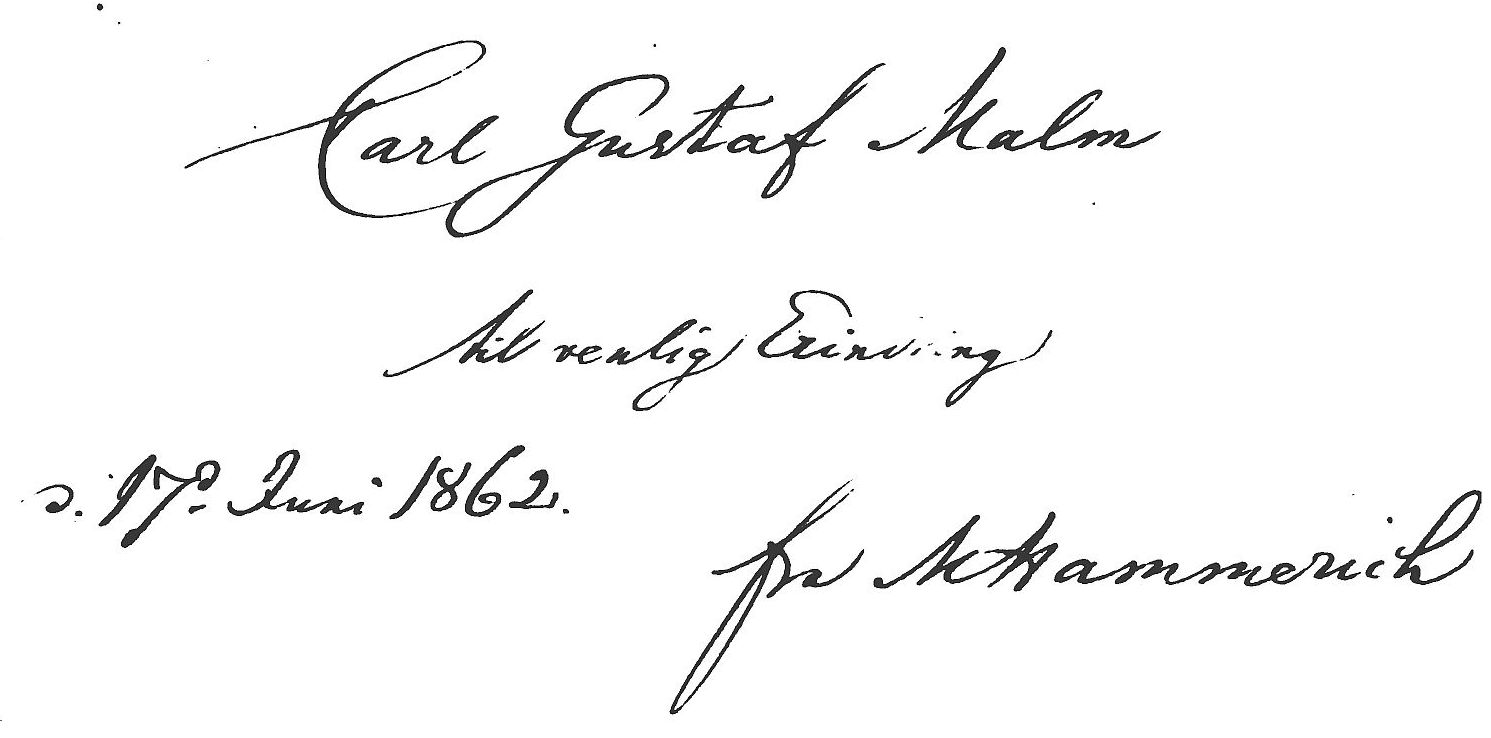 Carl Gustaf Malm
til venlig Erindring
d. 17de Juni 1862.
fra MHammerich